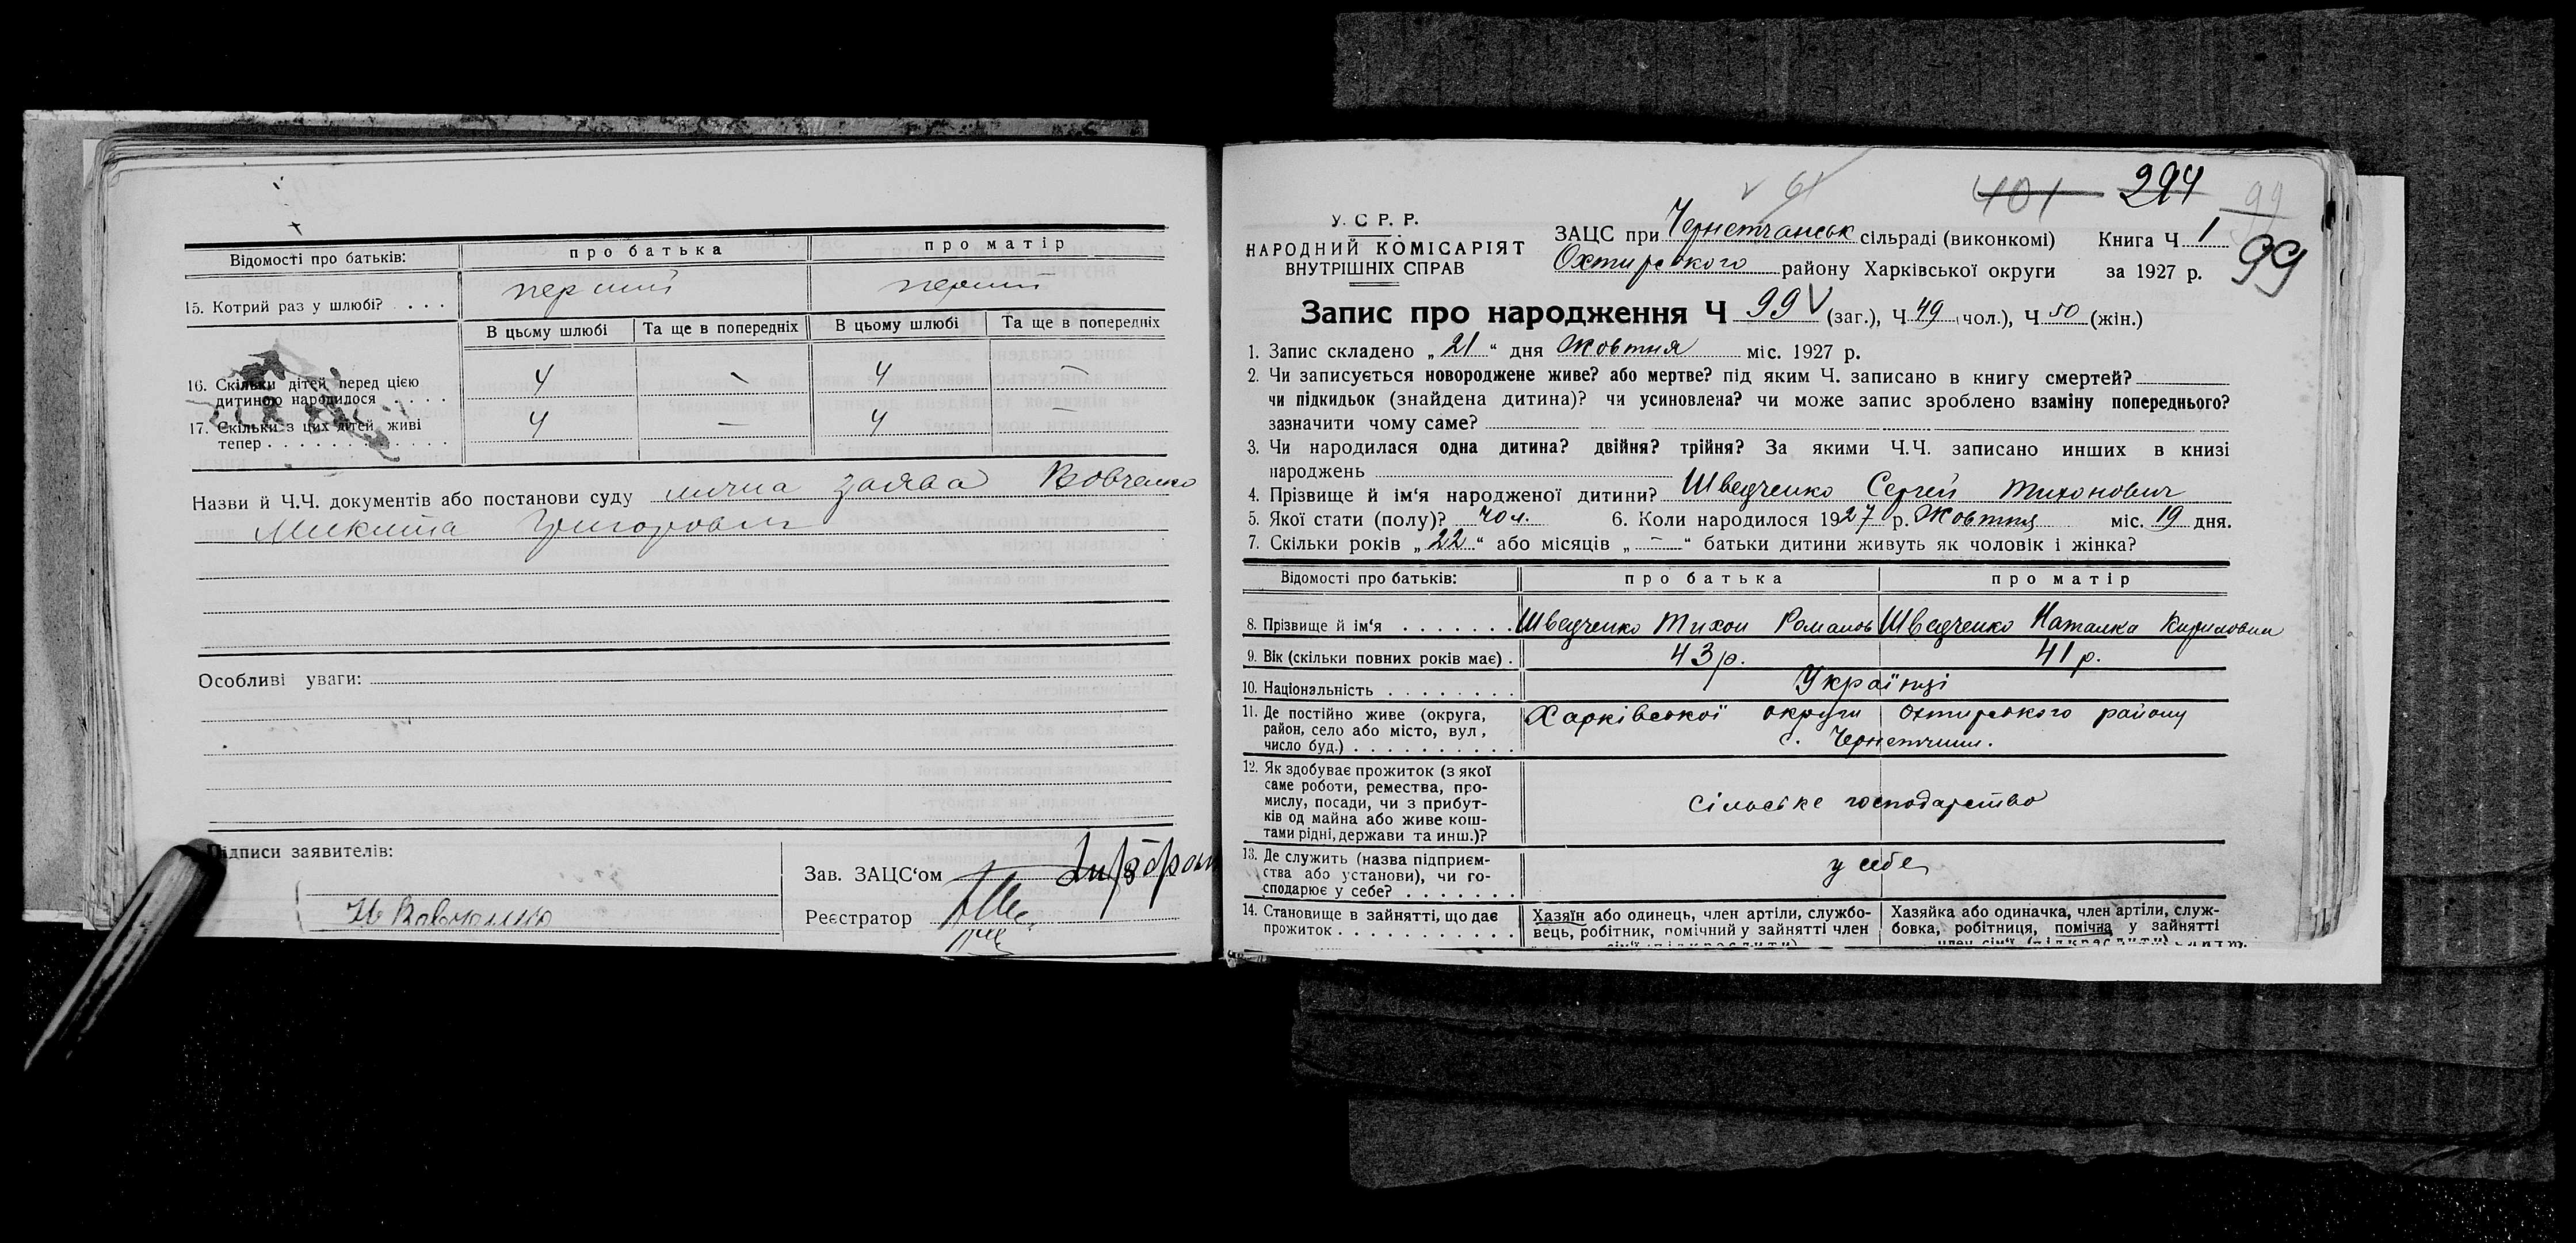 Відомості про батьків: про батька про матір
15. Котрий раз у шлюбі? . . . . перший перший
В цьому шлюбі Та ще в попередніх В цьому шлюбі Та ще в попередніх
16. Скільки дітей перед цією
дитиною народилося . . . . 4 – 4 –
17. Скільки з цих дітей живі
тепер . . . . . . . . . . . . 4 – 4 –
Назви й Ч.Ч. документів або постанови суду лична заява Вовченко
Микита Григорович
Особливі уваги:
Підписи заявителів:
Зав. ЗАЦС'ом
Реєстратор
Н Вовченко
401 294 99
У. С. Р. Р.
НАРОДНИЙ КОМІСАРІЯТ
ВНУТРІШНІХ СПРАВ
ЗАЦС при Чернетчанськ сільраді (виконкомі) Книга Ч 1
Охтирського району Харківської округи за 1927 р. 99
Запис про народження Ч 99 V (заг.), Ч 49 (чол.), Ч 50 (жін.)
1. Запис складено „ 21 “ дня Жовтня міс. 1927 р.
2. Чи записується новороджене живе? або мертве? під яким Ч. записано в книгу смертей?
чи підкидьок (знайдена дитина)? чи усиновлена? чи може запис зроблено взаміну попереднього?
зазначити чому саме?
3. Чи народилася одна дитина? двійня? трійня? За якими Ч.Ч. записано инших в книзі
народжень
4. Прізвище й ім'я народженої дитини? Шведченко Сергей Тихонович
5. Якої стати (полу)? чол. 6. Коли народилося 1927 р. Жовтня міс. 19 дня.
7. Скільки років „ 22 “ або місяців „ – “ батьки дитини живуть як чоловік і жінка?
Відомості про батьків: про батька про матір
8. Прізвище й ім'я . . . . . . . Шведченко Тихон Романов Шведченко Наталка Кириловна
9. Вік (скільки повних років має) . 43 р. 41 р.
10. Національність . . . . . . . . Українці
11. Де постійно живе (округа, Харківської округи Охтирського району
район, село або місто, вул,
число буд.) . . . . . . . . . . . с. Чернетчини.
12. Як здобуває прожиток (з якої
саме роботи, ремества, про-
мислу, посади, чи з прибут- сільське господарство
ків од майна або живе кош-
тами рідні, держави та инш.)?
13. Де служить (назва підприєм- у себе
ства або установи), чи го-
сподарює у себе? . . . . . . .
14. Становище в зайнятті, що дає Хазяїн або одинець, член артіли, службо- Хазяйка або одиначка, член артіли, служ-
прожиток . . . . . . . . . . . . вець, робітник, помічний у зайнятті член бовка, робітниця, помічна у зайнятті
сім'ї (підкреслити) член сім'ї (підкреслити)